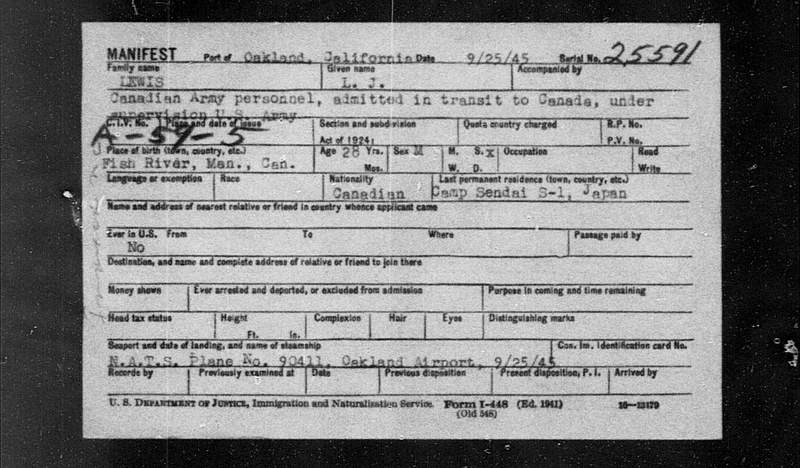 MANIFEST Port of Oakland, California Date 9/25/45 Serial No. 25591
Family name Given name Accompanied by
LEWIS L. J.
Canadian Army personnel, admitted in transit to Canada, under
supervision U.S. Army
C.I.V. No. Place and date of issue Section and subdivision Quota country charged R.P. No.
A-59-5 Act of 1924: P.V. No.
Place of birth (town, country, etc.) Age 28 Yrs. Sex M M. S. x Occupation Read
Fish River, Man., Can. Mos. W. D. Write
Language or exemption Race Nationality Last permanent residence (town, country, etc.)
Canadian Camp Sendai S-1, Japan
Name and address of nearest relative or friend in country whence applicant came
Ever in U.S. From To Where Passage paid by
No
Destination, and name and complete address of relative or friend to join there
Money shown Ever arrested and deported, or excluded from admission Purpose in coming and time remaining
Head tax status Height Complexion Hair Eyes Distinguishing marks
Ft. In.
Seaport and date of landing, and name of steamship Can. Im. Identification card No.
N.A.T.S. Plane No. 90411, Oakland Airport, 9/25/45
Records by Previously examined at Date Previous disposition Present disposition, P.I. Arrived by
U. S. DEPARTMENT OF JUSTICE, Immigration and Naturalization Service. Form I-448 (Ed. 1941) 16—13179
(Old 548)